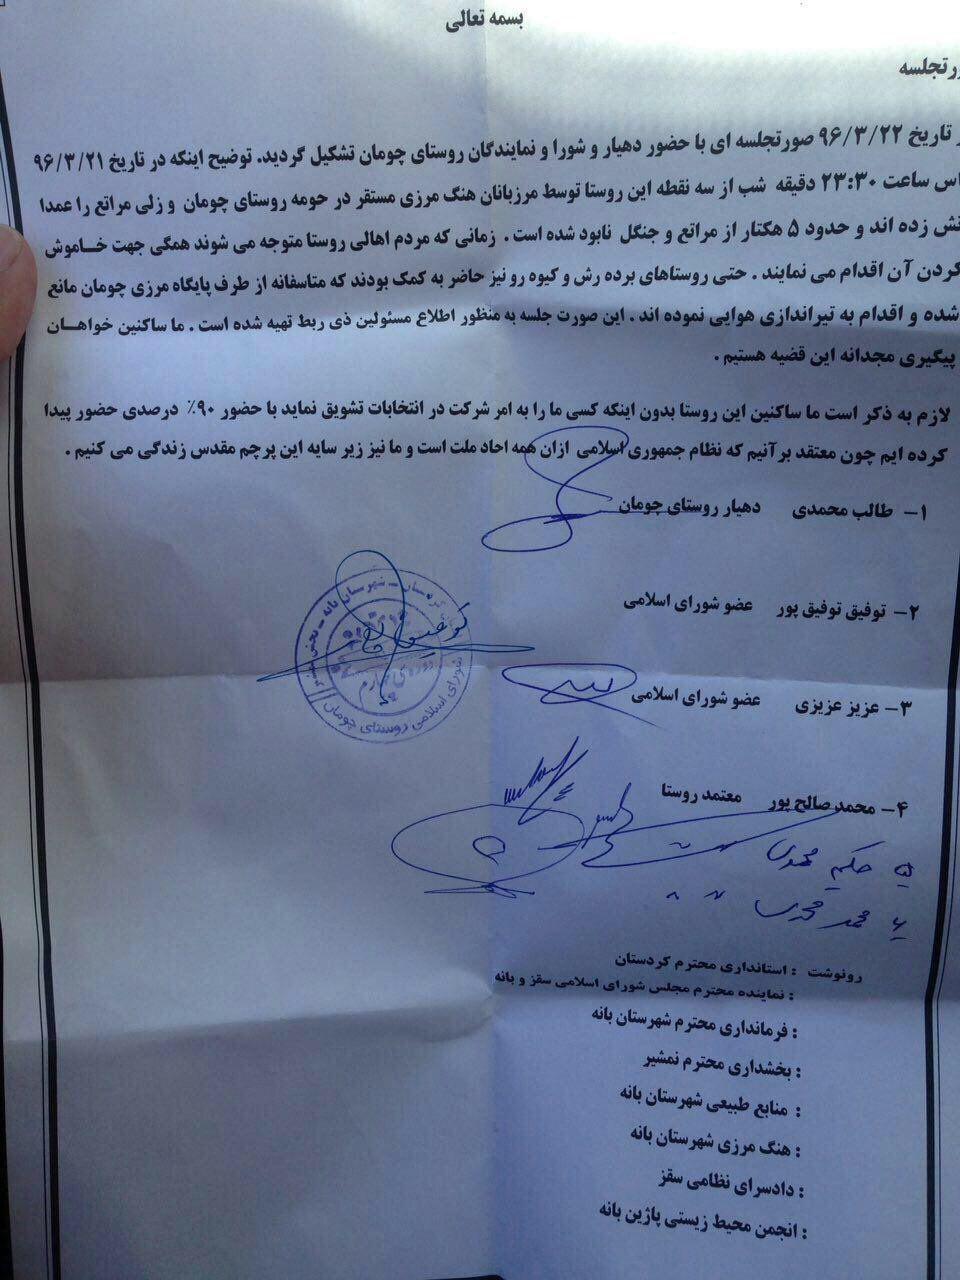 بسمه تعالی
رتجلسه
تاریخ ۹۶/۳/۲۲ صورتجلسه ای با حضور دهیار و شورا و نمایندگان روستای چومان تشکیل گردید. توضیح اینکه در تاریخ ۹۶/۳/۲۱
اس ساعت ۲۳:۳۰ دقیقه شب از سه نقطه این روستا توسط مرزبانان هنگ مرزی مستقر در حومه روستای چومان و زلی مراتع را عمدا
تش زده اند و حدود ۵ هکتار از مراتع و جنگل نابود شده است . زمانی که مردم اهالی روستا متوجه می شوند همگی جهت خاموش
کردن آن اقدام می نمایند . حتی روستاهای برده رش و کیوه رو نیز حاضر به کمک بودند که متاسفانه از طرف پایگاه مرزی چومان مانع
شده و اقدام به تیراندازی هوایی نموده اند . این صورت جلسه به منظور اطلاع مسئولین ذی ربط تهیه شده است . ما ساکنین خواهان
پیگیری مجدانه این قضیه هستیم .
لازم به ذکر است ما ساکنین این روستا بدون اینکه کسی ما را به امر شرکت در انتخابات تشویق نماید با حضور ۹۰٪ درصدی حضور پیدا
کرده ایم چون معتقد برآنیم که نظام جمهوری اسلامی ازان همه احاد ملت است و ما نیز زیر سایه این پرچم مقدس زندگی می کنیم .
۱- طالب محمدی دهیار روستای چومان
۲- توفیق توفیق پور عضو شورای اسلامی
شورای اسلامی روستای چومان
۳- عزیز عزیزی عضو شورای اسلامی
۴- محمد صالح پور معتمد روستا
۵ حکیم محمدی
۶ محمد محمدی
رونوشت : استانداری محترم کردستان
: نماینده محترم مجلس شورای اسلامی سقز و بانه
: فرمانداری محترم شهرستان بانه
: بخشداری محترم نمشیر
: منابع طبیعی شهرستان بانه
: هنگ مرزی شهرستان بانه
: دادسرای نظامی سقز
: انجمن محیط زیستی پاژین بانه